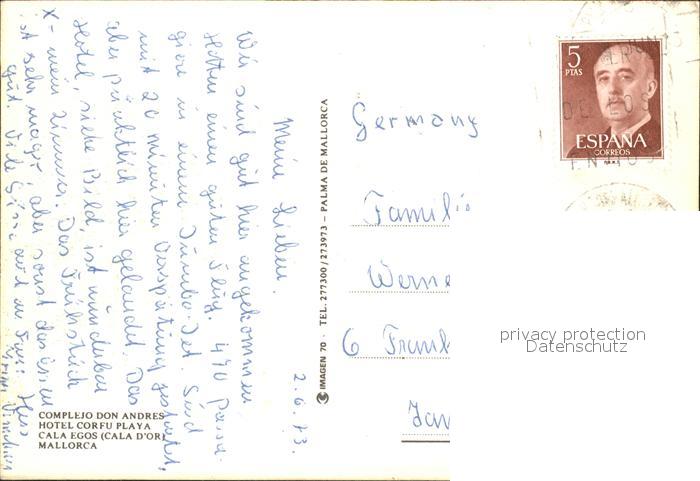 2.6.73.
Meine Lieben.
Wir sind gut hier angekommen
Hatten einen guten Flug. 470 Passa-
giere in einem Jumbo-Jet. Sind
mit 20 minuten Verspätung gestartet,
aber pünktlich hier gelandet. Das
Hotel, siehe Bild, ist wunderbar
X- mein Zimmer. Das Frühstück
ist sehr mager, aber sonst das Essen
gut. Viele Grüsse
COMPLEJO DON ANDRES
HOTEL CORFU PLAYA
CALA EGOS (CALA D'OR)
MALLORCA
IMAGEN 70 TEL. 277300/273973 - PALMA DE MALLORCA
5
PTAS
ESPAÑA
CORREOS
Germany
Famili
Werne
6 Frank
privacy protection
Datenschutz